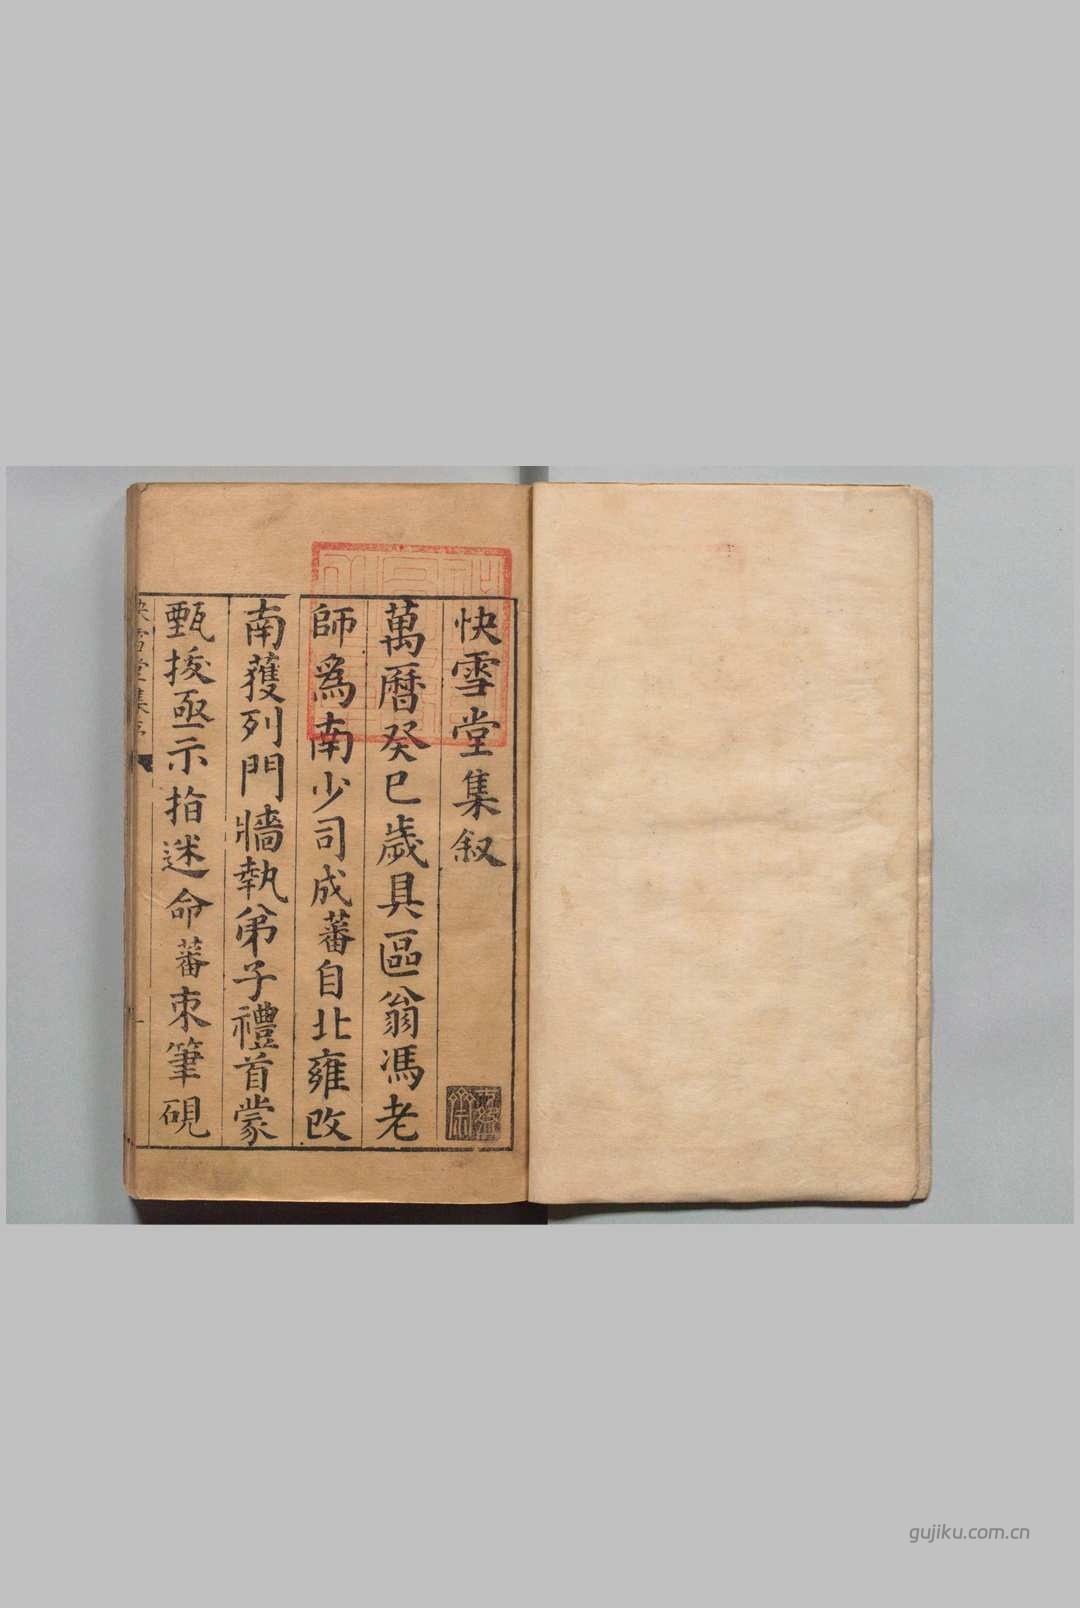 快雪堂集叙
萬曆癸巳歲具區翁馮老
師爲南少司成蕃自北雍改
南獲列門牆執弟子禮首蒙
甄拔亟示指迷命蕃束筆硯
快雪堂集序
一
gujiku.com.cn